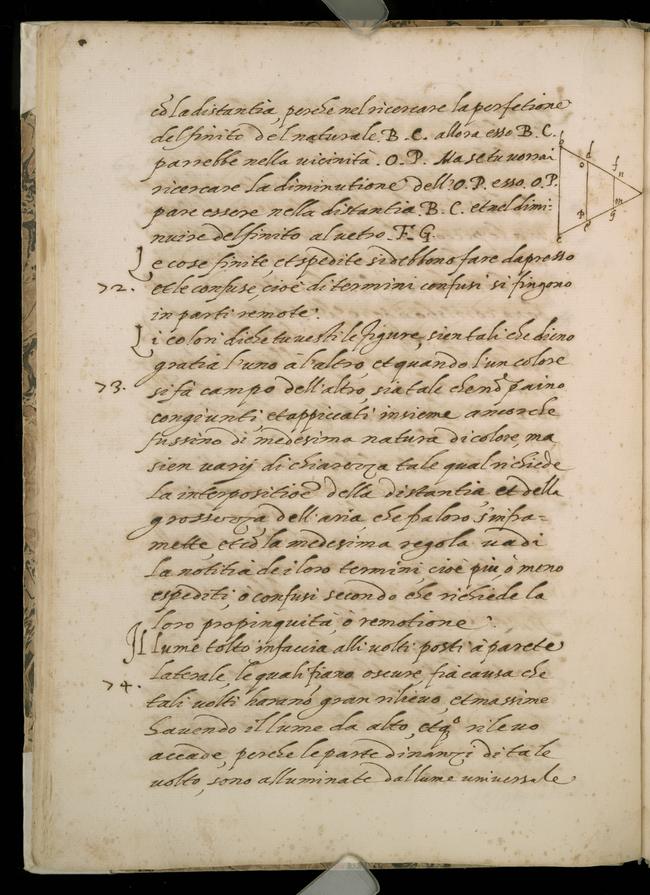 cõ la distantia, perche nel ricercare la perfetione
del finito del naturale .B.C. allora esso B.C.
parrebbe nella vicinità .O.P. Ma se tu vorrai
ricercare la diminutione dell'O.P. esso .O.P.
pare essere nella distantia B.C. et nel dimi-
nuire del finito al vetro .F.G.
b
d
o
f
n
a
m
g
p
e
c
Le cose finite, et spedite si debbono fare dapresso
72. et le confuse, cioè di termini confusi si fingono
in parti remote.
Li colori di che tu vesti le figure, sien tali che dieno
gratia l'uno à l'altro, et quando l'un colore
73. si fà campo dell'altro, sia tale che nõ paino
congiunti, et appiccati insieme ancorche
fussino di medesima natura di colore, ma
sien varij di chiarezza tale qual richiede
la interpositioẽ della distantia, et della
grossezza dell'aria, che fra loro s'infra-
mette, et cõ la medesima regola vadi
la notitia de i loro termini cioè più, ò meno
espediti, o confusi secondo che richiede la
loro propinquità, ò remotione.
Il lume tolto in faccia alli volti posti à parete
laterale, le quali fiano oscure, fia causa che
74. tali volti haranõ gran rilievo, et massime
havendo il lume da alto, et qº rilievo
accade, perche le parte dinanzi di tale
volto, sono alluminate dal lume universale